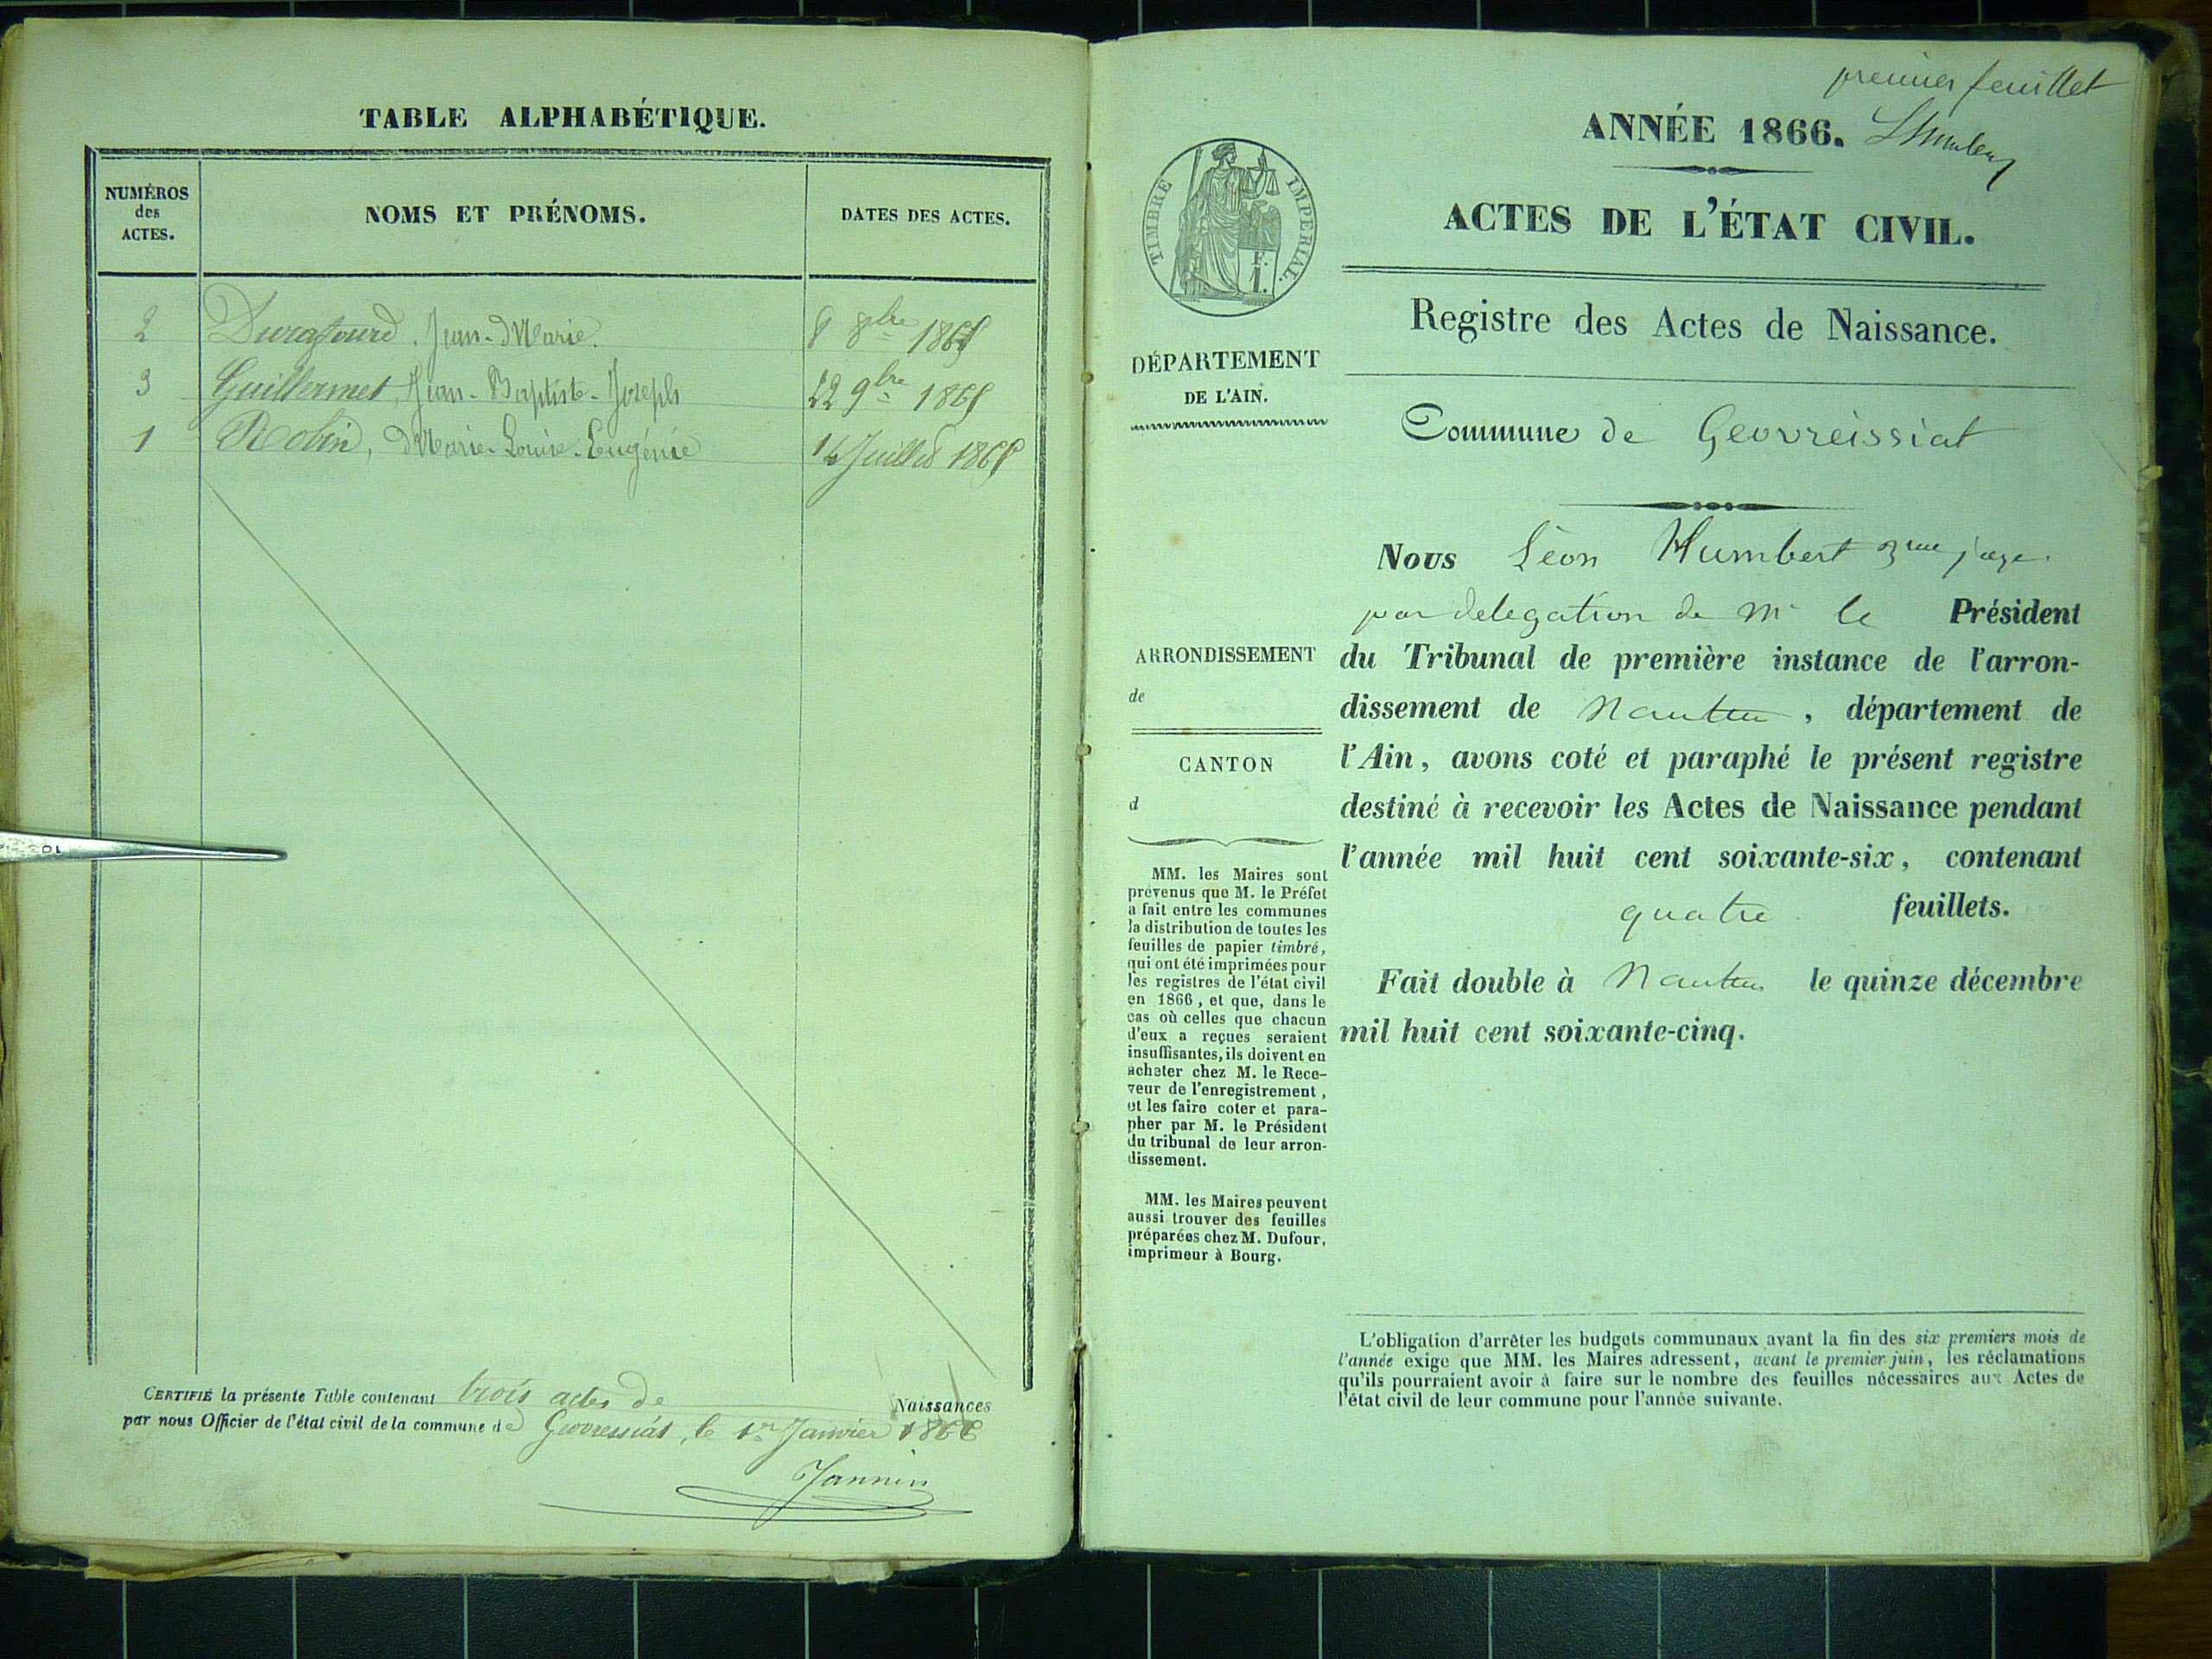 TABLE ALPHABÉTIQUE.
NUMÉROS
des
ACTES.
NOMS ET PRÉNOMS.
DATES DES ACTES.
2 Durafourd, Jean-Marie. 8 8bre 1865
3 Guillermet, Jean-Baptiste-Joseph 22 9bre 1865
1 Robin, Marie-Louise-Eugénie 14 Juillet 1865
CERTIFIÉ la présente Table contenant trois actes de Naissances
par nous Officier de l'état civil de la commune de Geovressiat, le 1er Janvier 1866
Jannin
premier feuillet
ANNÉE 1866. LHumbert
ACTES DE L'ÉTAT CIVIL.
TIMBRE IMPERIAL.
F.
1.
Registre des Actes de Naissance.
DÉPARTEMENT
DE L'AIN.
Commune de Geovreissiat
Nous Léon Humbert 3me juge
par delegation de Mr le Président
du Tribunal de première instance de l'arron-
dissement de Nantua, département de
l'Ain, avons coté et paraphé le présent registre
destiné à recevoir les Actes de Naissance pendant
l'année mil huit cent soixante-six, contenant
quatre feuillets.
Fait double à Nantua le quinze décembre
mil huit cent soixante-cinq.
ARRONDISSEMENT
de
CANTON
d
MM. les Maires sont
prévenus que M. le Préfet
a fait entre les communes
la distribution de toutes les
feuilles de papier timbré,
qui ont été imprimées pour
les registres de l'état civil
en 1866, et que, dans le
cas où celles que chacun
d'eux a reçues seraient
insuffisantes, ils doivent en
acheter chez M. le Rece-
veur de l'enregistrement,
et les faire coter et para-
pher par M. le Président
du tribunal de leur arron-
dissement.
MM. les Maires peuvent
aussi trouver des feuilles
préparées chez M. Dufour,
imprimeur à Bourg.
L'obligation d'arrêter les budgets communaux avant la fin des six premiers mois de
l'année exige que MM. les Maires adressent, avant le premier juin, les réclamations
qu'ils pourraient avoir à faire sur le nombre des feuilles nécessaires aux Actes de
l'état civil de leur commune pour l'année suivante.